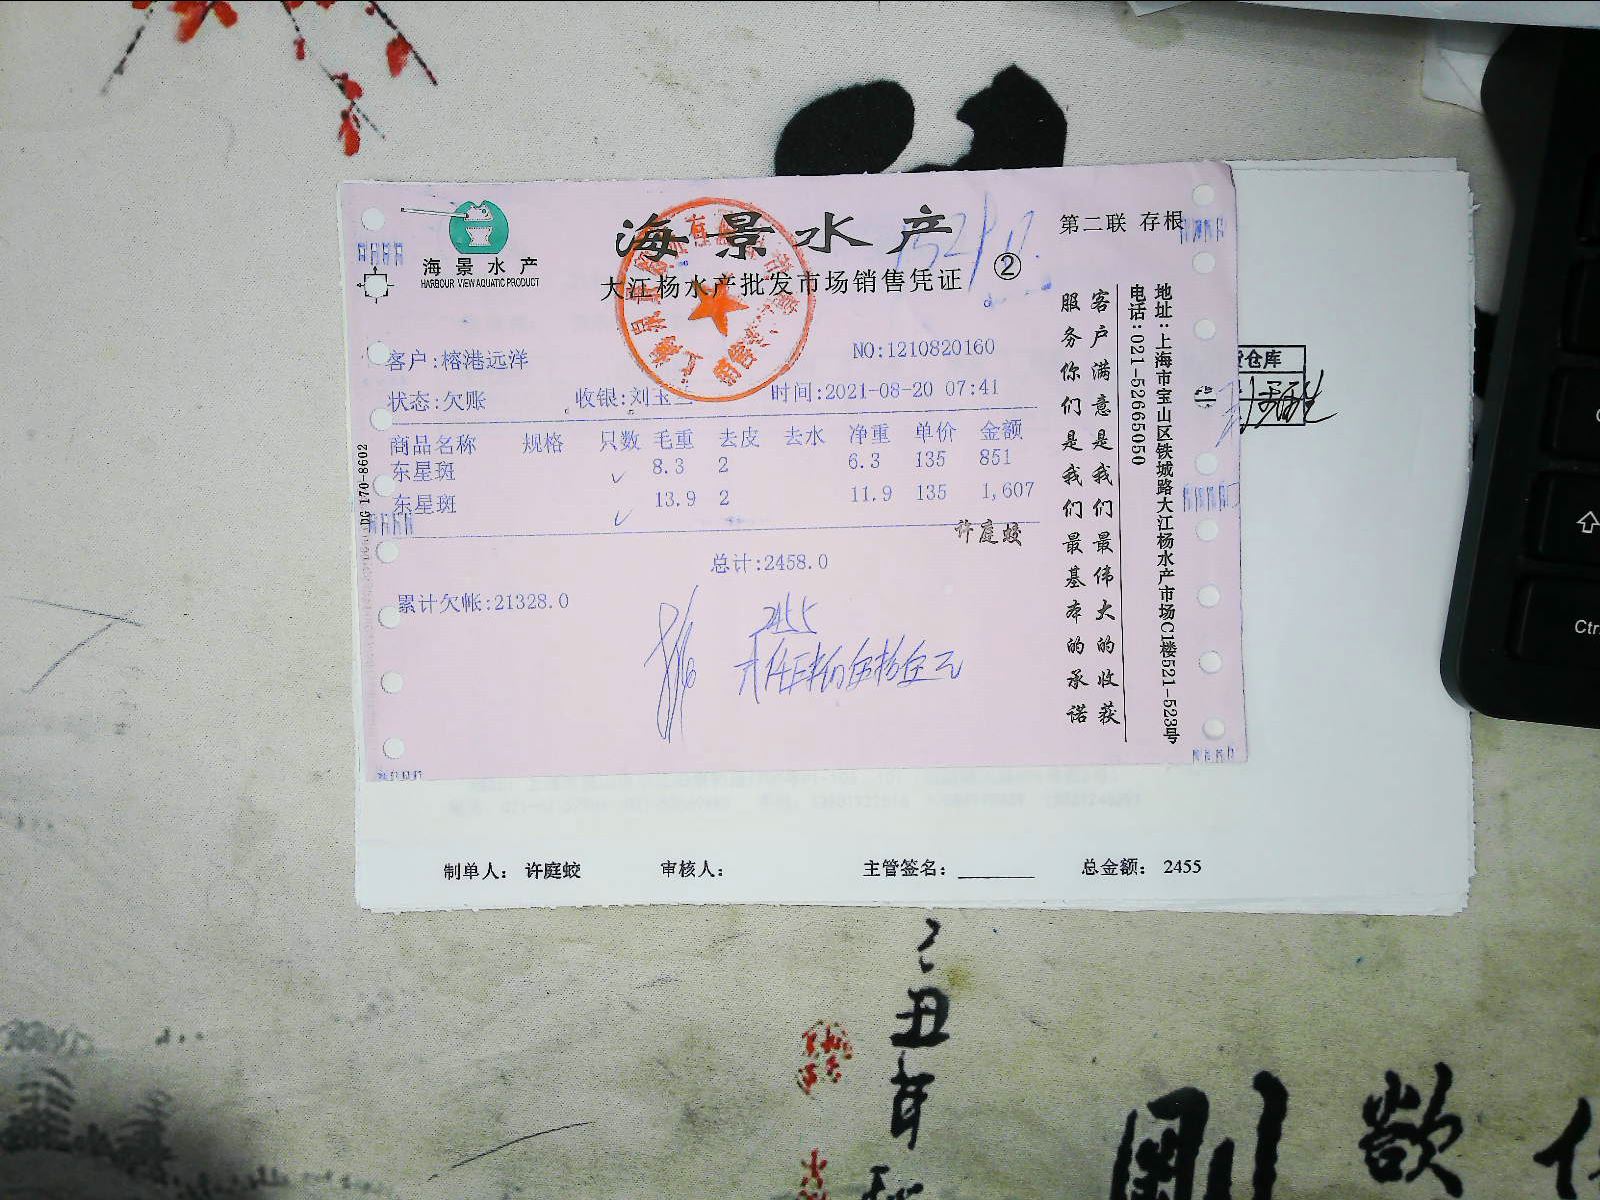 海景水产
第二联 存根
海景水产
HARBOUR VIEW AQUATIC PRODUCT
大江杨水产批发市场销售凭证
②
客户:榕港远洋
NO:1210820160
状态:欠账 收银:刘玉兰 时间:2021-08-20 07:41
商品名称 规格 只数 毛重 去皮 去水 净重 单价 金额
东星斑 8.3 2 6.3 135 851
东星斑 13.9 2 11.9 135 1,607
许庭蛟
总计:2458.0
累计欠帐:21328.0
2455
贰仟肆佰伍拾伍元
客户满意是我们最伟大的收获
服务你们是我们最基本的承诺
地址:上海市宝山区铁城路大江杨水产市场C1楼521-523号
电话:021-52665050
DG 170-8602
仓库
制单人: 许庭蛟 审核人: 主管签名: 总金额: 2455
Ctr
丑年
欲